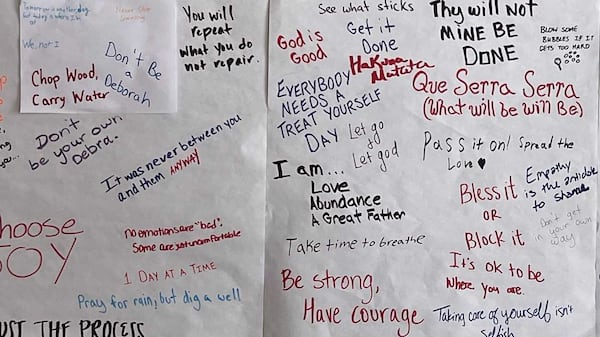 Tomorrow is another day
Never Stop
We, not I
Chop Wood,
Carry Water
Don't Be
a
Deborah
You will
repeat
what you do
not repair.
Don't
be your own
Debra.
It was never between you
and them ANYWAY
Choose
JOY
no emotions are "bad".
Some are just uncomfortable
1 DAY AT A TIME
Pray for rain, but dig a well
UST THE PROCESS
See what sticks
God is
Good
Get it
Done
Hakuna
Matata
EVERYBODY
NEEDS A
TREAT YOURSELF
DAY
Let go
&
Let god
I am...
Love
Abundance
A Great Father
Take time to breathe
Be strong,
Have courage
Thy will not
MINE BE
DONE
BLOW SOME
BUBBLES IF IT
GETS TOO HARD
Que Serra Serra
(What will be will Be)
Pass it on! Spread the
Love
Bless it
OR
Block it
Empathy
is the antidote
to shame
Don't get
in your own
way
It's ok to be
where you are.
Taking care of yourself isn't
selfish